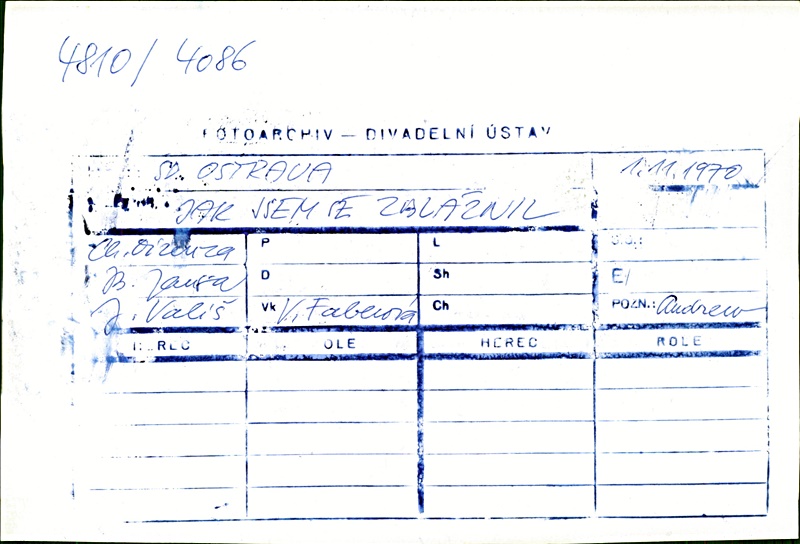 4810/ 4086
FOTOARCHIV — DIVADELNÍ ÚSTAV
SD. OSTRAVA 1.11.1970
JAK JSEM SE ZBLÁZNIL
P L
B. Jansa D Sh E/
J. Vališ Vk V. Faberová Ch POZN.: Andrew
HEREC ROLE HEREC ROLE